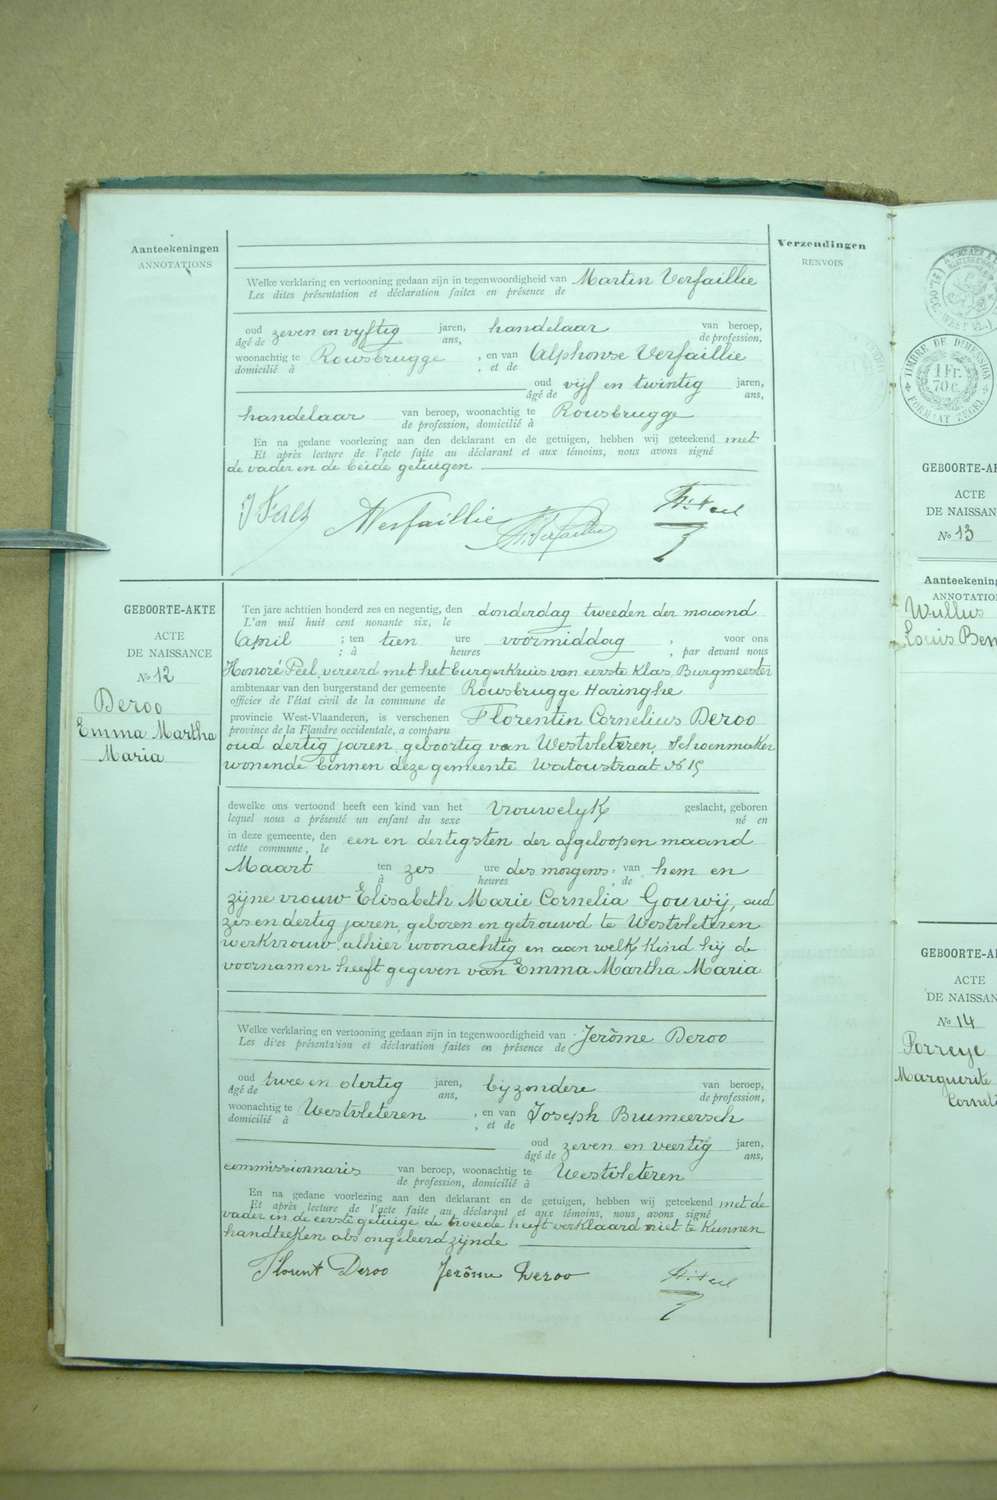 Aanteekeningen
ANNOTATIONS
Verzendingen
RENVOIS
Welke verklaring en vertooning gedaan zijn in tegenwoordigheid van Martin Verfaillie
Les dites présentation et déclaration faites en présence de
oud zeven en vyftig jaren, handelaar van beroep,
âgé de ans, de profession,
woonachtig te Rousbrugge , en van Alphonse Verfaillie
domicilié à , et de
oud vijf en twintig jaren,
âgé de ans,
handelaar van beroep, woonachtig te Rousbrugge
de profession, domicilié à
En na gedane voorlezing aan den deklarant en de getuigen, hebben wij geteekend met
Et après lecture de l'acte faite au déclarant et aux témoins, nous avons signé
de vader en de beide getuigen
Verfaillie
GEBOORTE-AKTE
ACTE
DE NAISSANCE
No 12
Deroo
Emma Martha
Maria
Ten jare achtien honderd zes en negentig, den donderdag tweeden der maand
L'an mil huit cent nonante six, le
April ; ten tien ure voormiddag , voor ons
; à heures , par devant nous
Honoré Peel, vereerd met het burgerkruis van eerste Klas, Burgmeester
ambtenaar van den burgerstand der gemeente Rousbrugge Haringhe
officier de l'état civil de la commune de
provincie West-Vlaanderen, is verschenen Florentin Cornelius Deroo
province de la Flandre occidentale, a comparu
oud dertig jaren, geboortig van Westvleteren, Schoenmaker
wonende binnen deze gemeente Watoustraat No 15
dewelke ons vertoond heeft een kind van het vrouwelyk geslacht, geboren
lequel nous a présenté un enfant du sexe né en
in deze gemeente, den een en dertigsten der afgeloopen maand
cette commune, le
Maart ten zes ure des morgens: van hem en
à heures , de
zijne vrouw Elisabeth Marie Cornelia Gouwij, oud
zes en dertig jaren, geboren en getrouwd te Westvleteren
werkvrouw, alhier woonachtig en aan welk kind hij de
voornamen heeft gegeven van Emma Martha Maria
Welke verklaring en vertooning gedaan zijn in tegenwoordigheid van Jerôme Deroo
Les dites présentation et déclaration faites en présence de
oud twee en dertig jaren, bijzondere van beroep,
âgé de ans, de profession,
woonachtig te Westvleteren , en van Joseph Brumeersch
domicilié à , et de
oud zeven en veertig jaren,
âgé de ans,
commissionnaris van beroep, woonachtig te Westvleteren
de profession, domicilié à
En na gedane voorlezing aan den deklarant en de getuigen, hebben wij geteekend met de
Et après lecture de l'acte faite au déclarant et aux témoins, nous avons signé
vader en de eerste getuige de tweede heeft verklaard niet te kunnen
handteeken als ongeleerd zijnde
Florent Deroo Jerôme Deroo
TIMBRE DE DIMENSION
1 Fr.
70 c.
FORMAAT ZEGEL
GEBOORTE-AK
ACTE
DE NAISSAN
No 13
Aanteekening
ANNOTATION
Wullus
Louis Ben
GEBOORTE-A
ACTE
DE NAISSAN
No 14
Porreye
Marguerite
Corneli